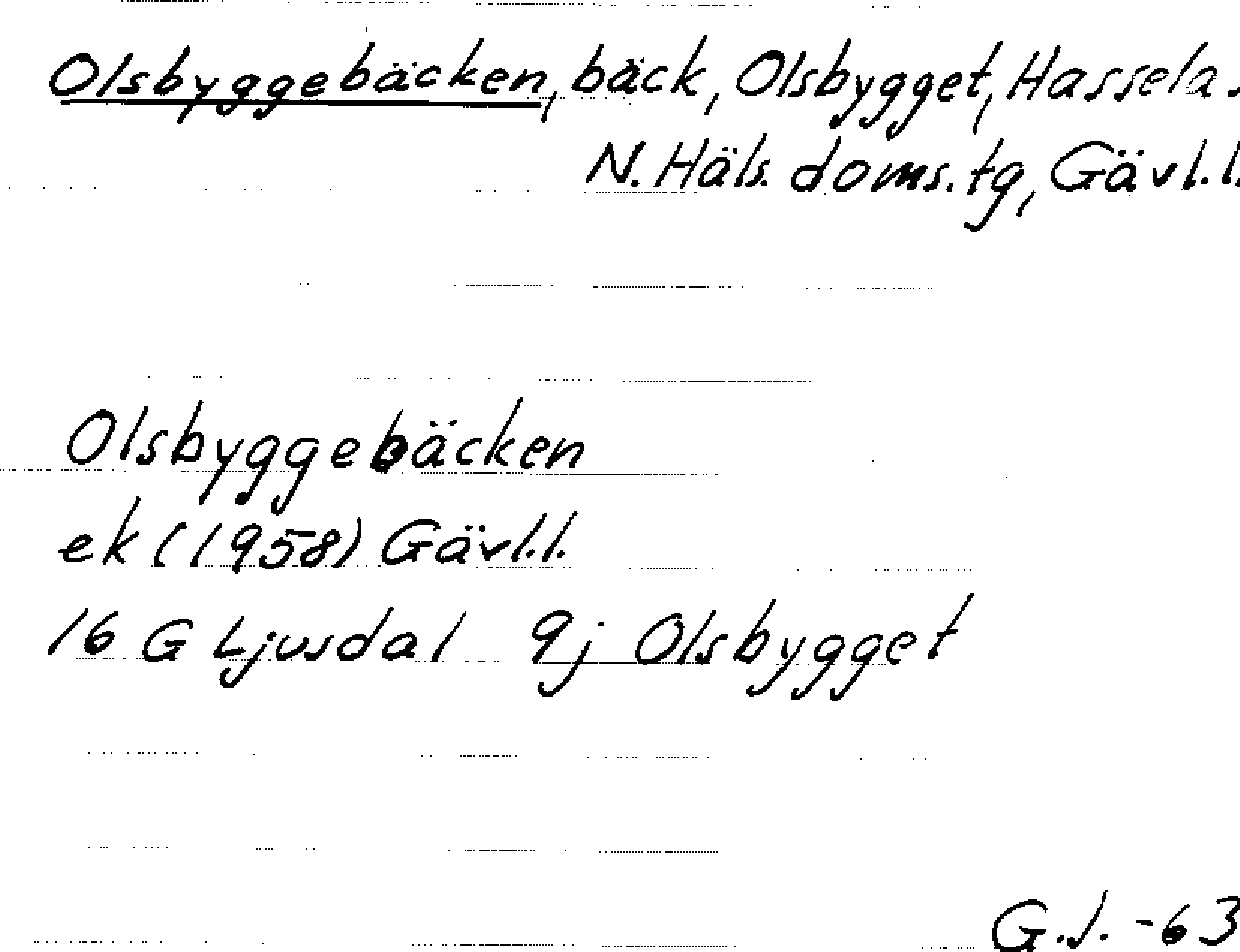 Olsbyggebäcken, bäck, Olsbygget, Hassela s
N. Häls. doms. tg, Gävl. l.
Olsbyggebäcken
ek (1958) Gävl. l.
16 G Ljusdal 9j Olsbygget
G.J. -63